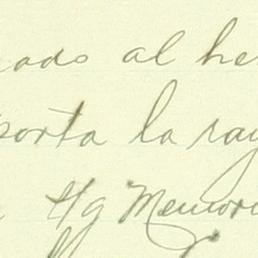 ado al he
porta la ray
Hg Memori